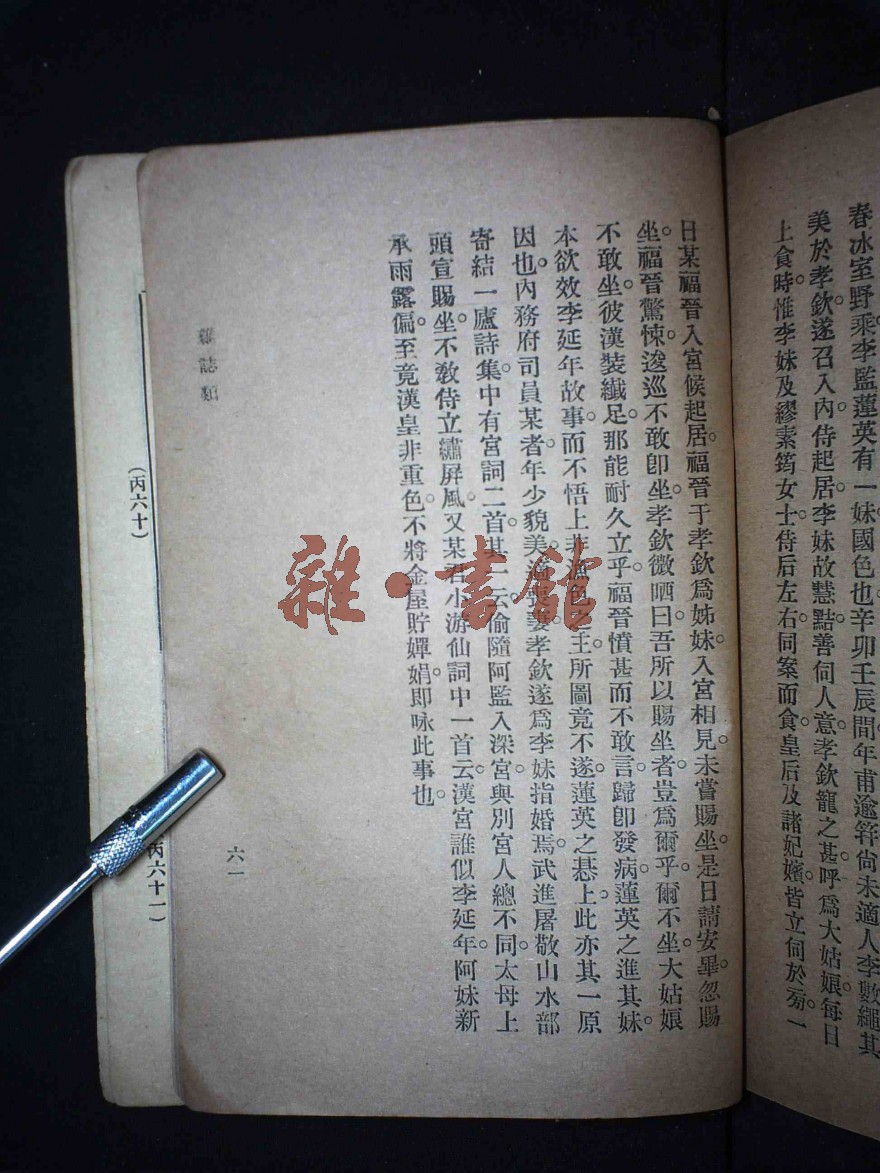 春冰室野乘。李監蓮英有一妹。國色也。辛卯壬辰間。年甫逾笄。尙未適人。李數繩其
美於孝欽。遂召入內侍起居。李妹故慧黠。善伺人意。孝欽寵之甚。呼爲大姑娘。每日
上食時。惟李妹及繆素筠女士侍后左右。同案而食。皇后及諸妃嬪皆立伺於旁。一
日某福晉入宮候起居。福晉于孝欽爲姊妹。入宮相見。未嘗賜坐。是日請安畢。忽賜
坐。福晉驚悚。逡巡不敢卽坐。孝欽微哂曰。吾所以賜坐者。豈爲爾乎。爾不坐。大姑娘
不敢坐。彼漢裝纖足。那能耐久立乎。福晉憤甚而不敢言。歸卽發病。蓮英之進其妹。
本欲效李延年故事。而不悟上非漁色之主。所圖竟不遂。蓮英之惎上。此亦其一原
因也。內務府司員某者。年少貌美。適喪妻。孝欽遂爲李妹指婚焉。武進屠敬山水部
寄結一廬詩集中有宮詞二首。其一云。偷隨阿監入深宮。與別宮人總不同。太母上
頭宣賜坐。不敎侍立繡屏風。又某君小游仙詞中一首云。漢宮誰似李延年。阿妹新
承雨露偏。至竟漢皇非重色。不將金屋貯嬋娟。卽咏此事也。
雜誌類
六一
(丙六十)
丙六十一)
雜·書館